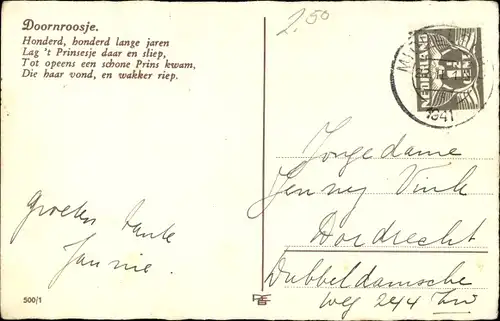 Doornroosje.
Honderd, honderd lange jaren
Lag 't Prinsesje daar en sliep,
Tot opeens een schone Prins kwam,
Die haar vond, en wakker riep.
2,50
NEDERLAND
1941
Jongedame
Jenny Vink
Dordrecht
Dubbeldamsche
weg 244 zw
Groeten tante
Jannie.
500/1